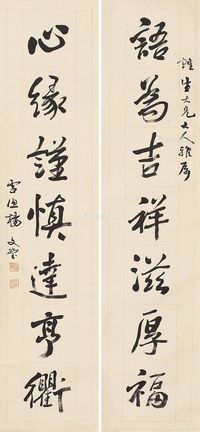 健生大兄大人雅属
語為吉祥滋厚福
心緣謹慎達亨衢
雪漁楊文瑩